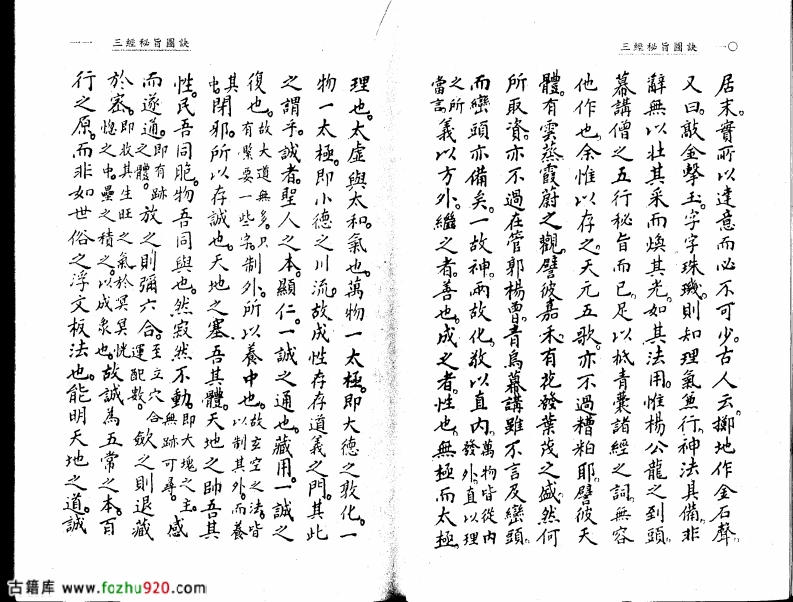 三經秘旨圖訣 一〇
居末。實所以達意而必不可少。古人云。擲地作金石聲。
又曰。敲金擊玉。字字珠璣。則知理氣兼行。神法具備。非
辭無以壯其采而煥其光。如其法用。惟楊公龍之到頭。
幕講僧之五行秘旨而已。足以抵青囊諸經之詞。無容
他作也。余惟以存之天元五歌。亦不過糟粕耶。譬彼天
體。有雲蒸霞蔚之觀。譬彼嘉禾。有花發葉茂之盛。然何
所取資。亦不過在管郭楊曾青烏幕講。雖不言及巒頭。
而巒頭亦備矣。一故神。兩故化。敬以直內。萬物皆從內發外。直以理
之所當言。義以方外。繼之者。善也。成之者。性也。無極而太極。
三經秘旨圖訣 一一
理也。太虛與太和。氣也。萬物一太極。即大德之敦化。一
物一太極。即小德之川流。故成性存存。道義之門。其此
之謂乎。誠者。聖人之本。顯仁。一誠之通也。藏用。一誠之
復也。故大道無多。只有緊要一些字。制外。所以養中也。故玄空之法。皆以制其外。而養
其中。閉邪。所以存誠也。天地之塞。吾其體。天地之帥。吾其
性。民吾同胞。物吾同與也。然寂然不動。即大塊之主。無跡可尋。感
而遂通。即有跡之體。放之則彌六合。至立穴合運配數。斂之則退藏
於密。即收其生旺之氣於冥冥恍惚之中。疊之積之。以成泉也。故誠為五常之本。百
行之原。而非如世俗之浮文板法也。能明天地之道。誠
古籍庫 www.fozhu920.com